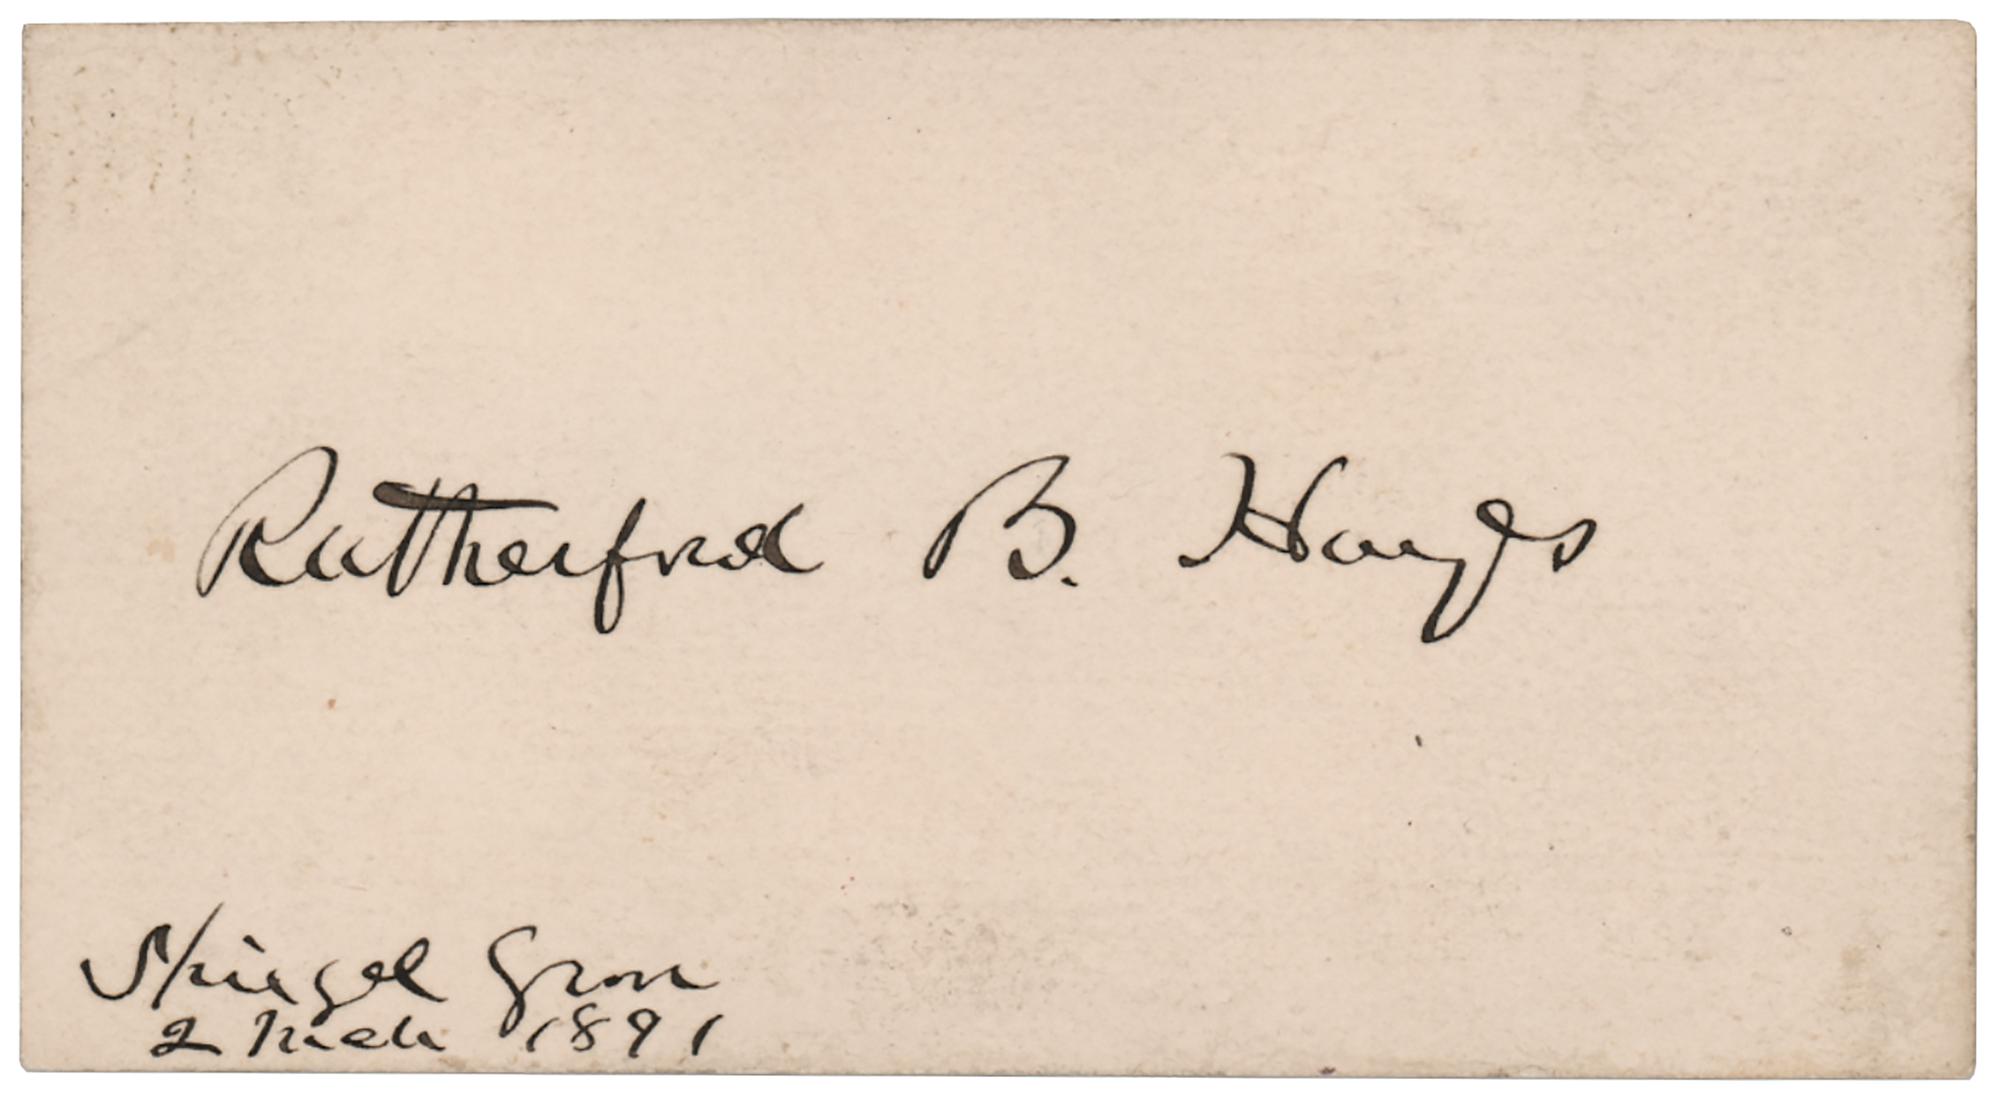 Rutherford B. Hayes
Spiegel Grove
2 Mch 1891